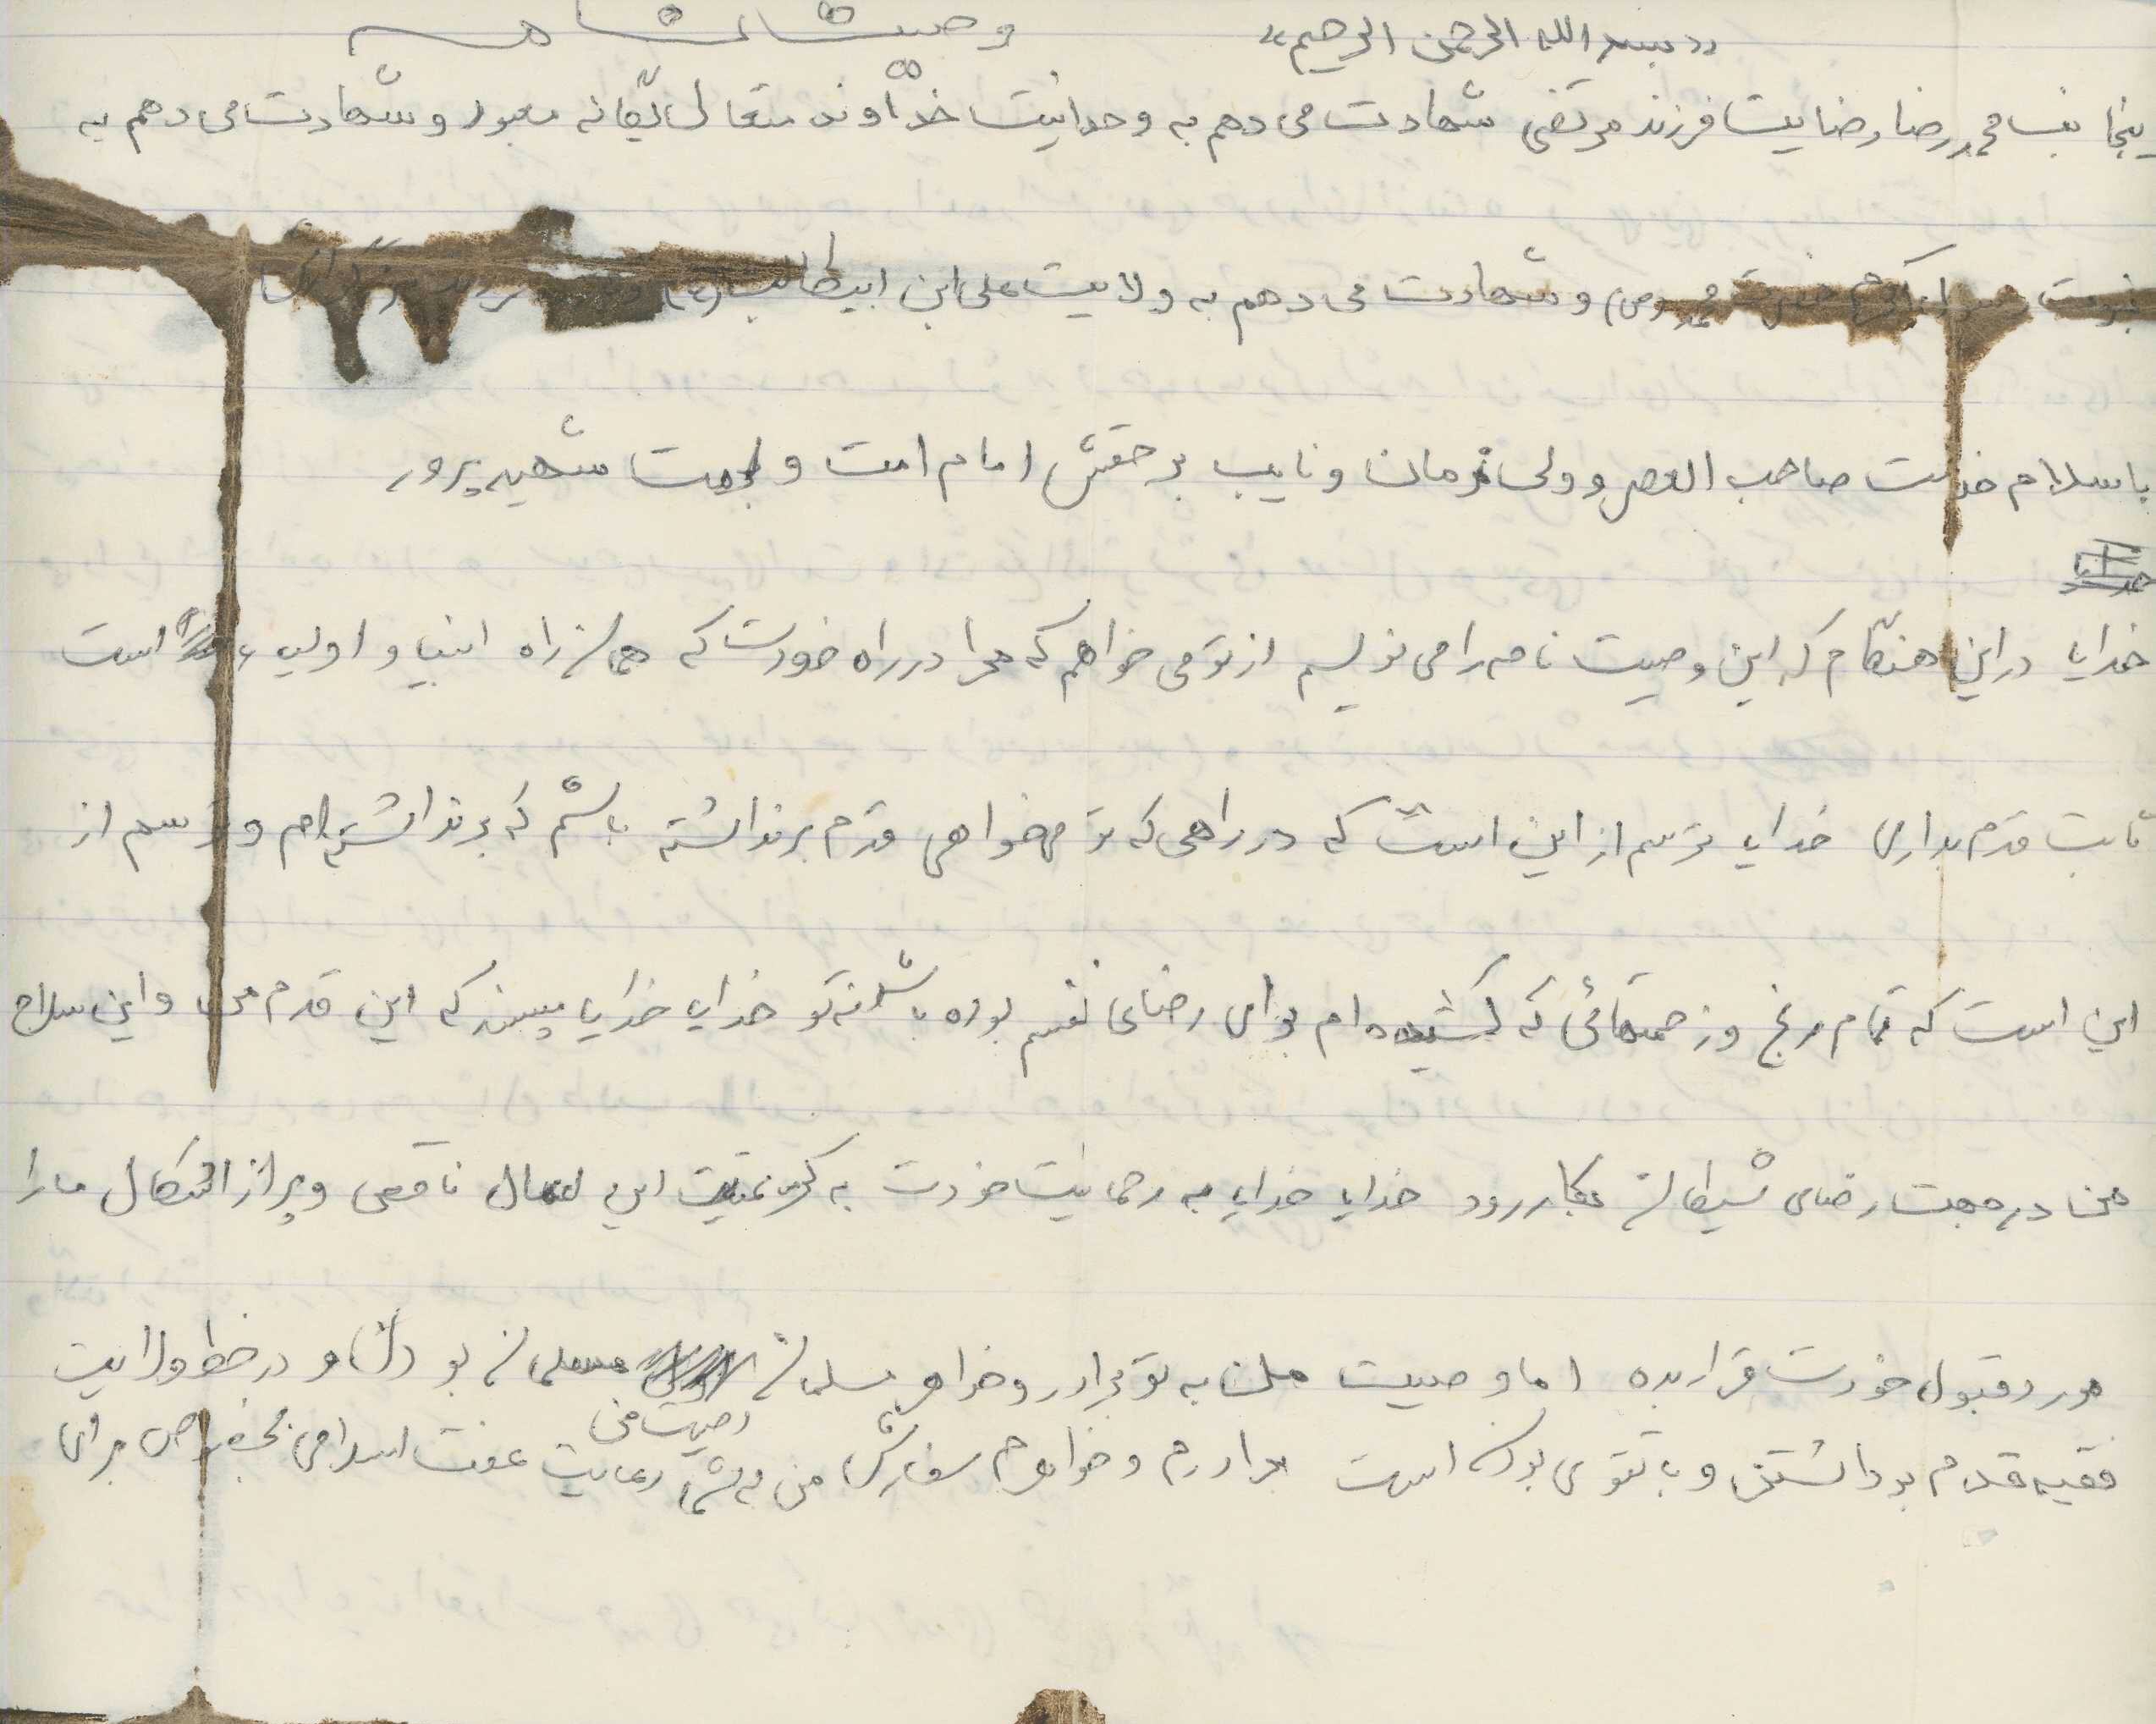 «بسم الله الرحمن الرحیم» وصیت نامه
ینجا نب محمد رضا رضایت فرزند مرتضی شهادت می دهم به وحدانیت خداوند متعال یگانه معبود و شهادت می دهم به
نبوت رسول اکرم حضرت محمد (ص) و شهادت می دهم به ولایت علی ابن ابیطالب (ع)
با سلام خدمت صاحب العصر و ولی زمان و نایب بر حقش امام امت و امت شهید پرور
خدایا
خدایا در این هنگام که این وصیت نامه را می نویسم از تو می خواهم که مرا در راه خودت که همان راه انبیا و اولیاء است
ثابت قدم بداری خدایا ترسم از این است که در راهی که تو میخواهی قدم برنداشته باشم که برنداشته ام و ترسم از
این است که تمام رنج و زحمتهائی که کشیده ام برای رضای نفسم بوده باشد نه تو خدایا خدایا مپسند که این قدم من و این سلاح
من در جهت رضای شیطان بکار رود خدایا خدایا به رحمانیت خودت به کریمیت این اعمال ناقص و پر از اشکال ما را
مورد قبول خودت قرار بده اما وصیت من به تو برادر و خواهر مسلمان مسلمان بودن و در خط ولایت
فقیه قدم برداشتن و با تقوی بودن است برادرم و خواهرم سفارش من وصیت من به شما رعایت عفت اسلامی بخصوص برای